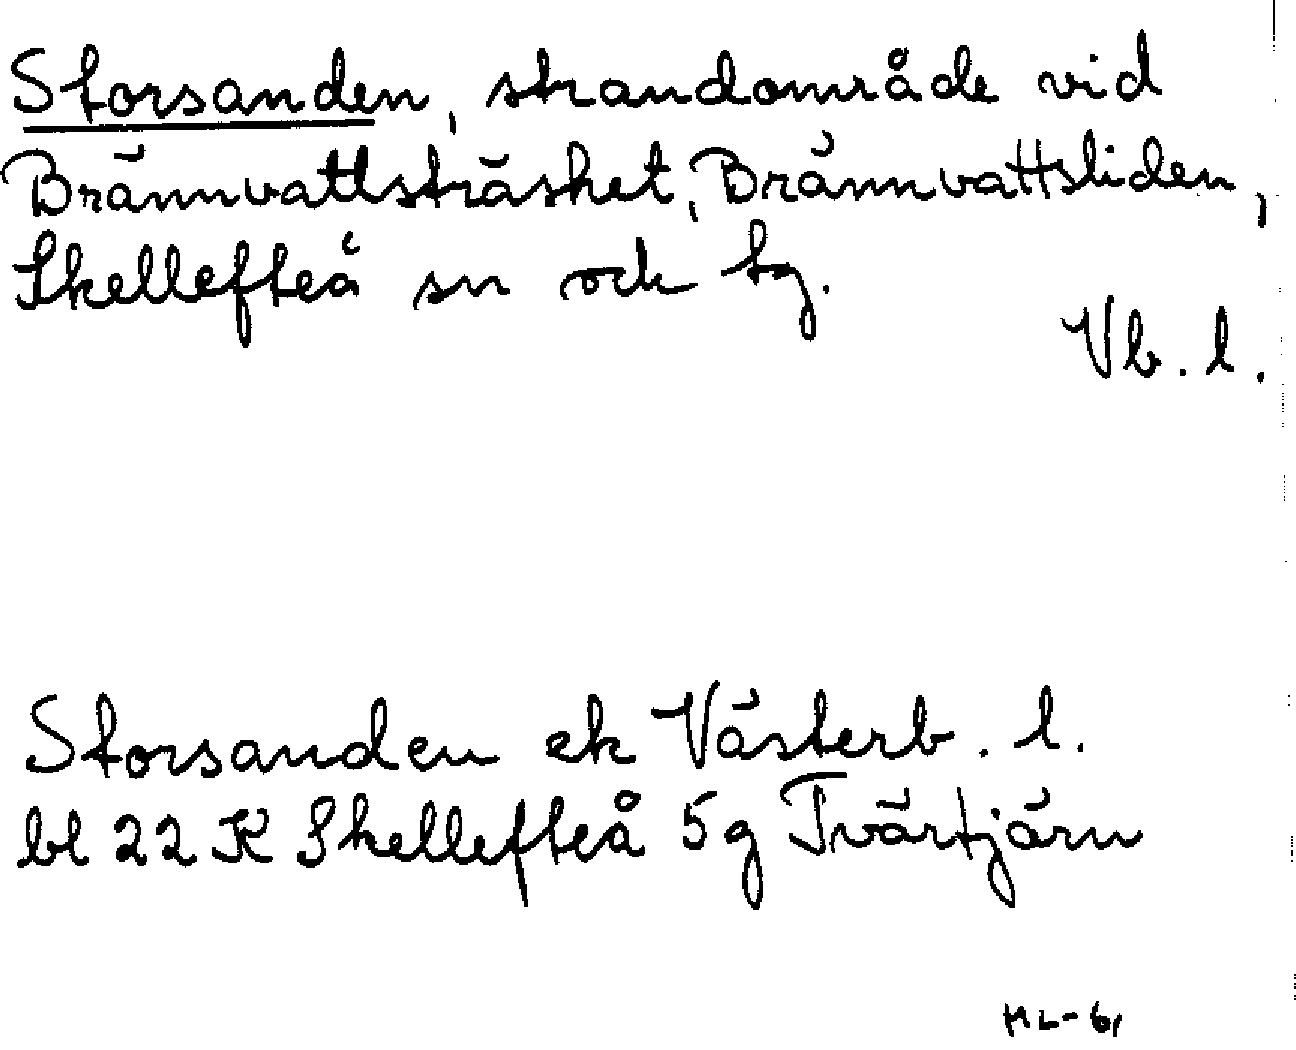 Storsanden, strandområde vid
Brännvattsträsket, Brännvattsliden,
Skellefteå sn och tg.
Vb. l.
Storsanden ek Västerb. l.
bl 22 K Skellefteå 5g Tvärtjärn
ML-61